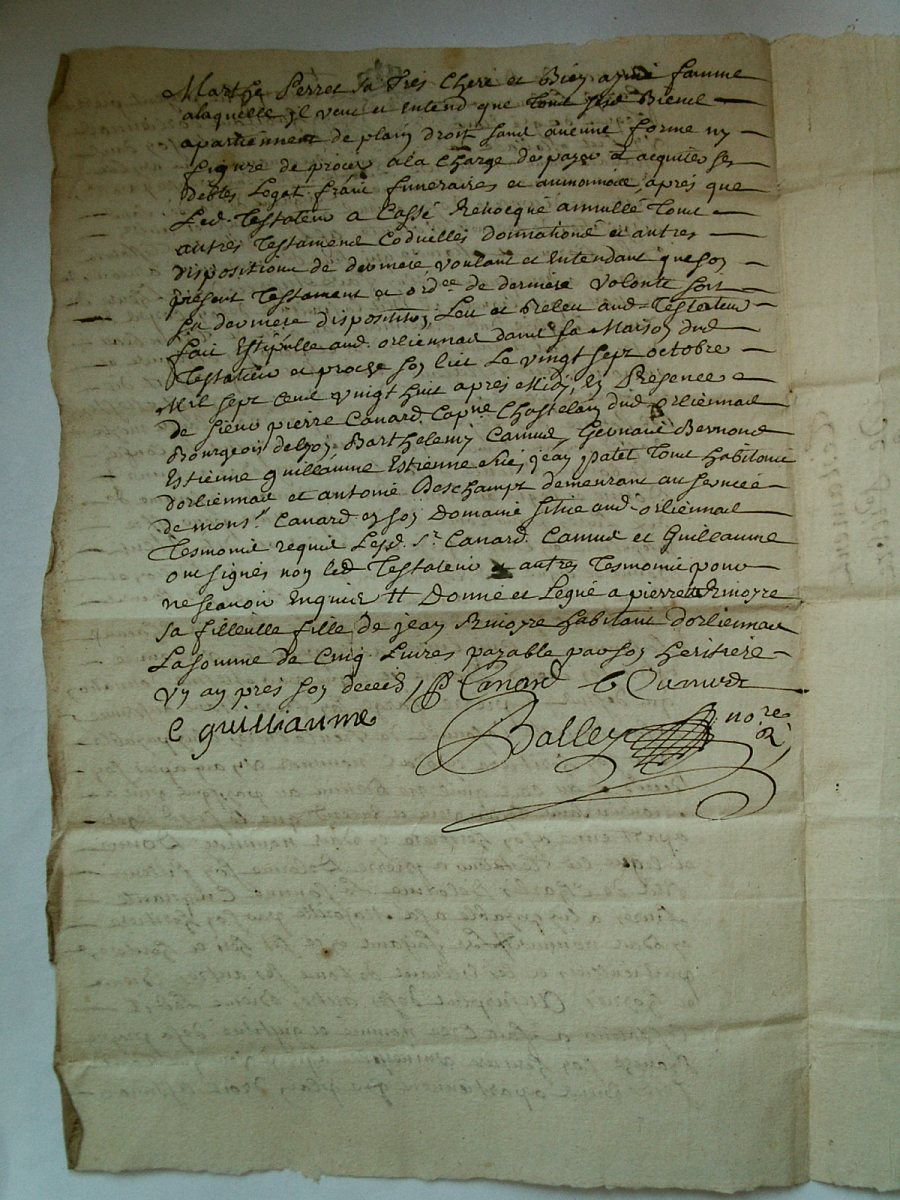 Marthe Perret sa tres chere et bien aymé famme
alaquelle il veut et entend que tout sesd biens
apartiennent de plain droit sans aucune forme ny
figure de proces ala charge de payer et acquiter ses
debtes legat fraiz funeraires et aumonnes, apres que
Led. Testateur a Cassé Revocqué annullé tout
autres Testamens Codicilles donnations et autres
dispositions de derniere, voulant et entendant que son
present Testament et ordce de derniere volonté soit
sa derniere disposition, Leu et Releu aud Testateur
fait estipullé aud. orliennas dans sa Maison dud
Testateur et proche son lict Le vingt sept octobre
Mil sept cent vingt huit apres Midy, En Presence
de sieur pierre Canard Capne Chastelain dud orliennas
Bourgeois de Lyon, Barthelemy Camus, Bernond
Estienne guillaume Estienne jean patet tout habitans
dorliennas et antoine Deschamps demeurant au service
de monsr. Canard en son Domaine situé aud. orliennas
Tesmoins requis Lesd. sr. Canard. Camus et Guillaume
ont signés non led Testateur et autres Tesmoins pour
ne scavoir Enquis tt Donne et Legué a pierrette
sa filleulle fille de jean habitant dorliennas
La somme de Cinq Livres payable par son heritiere
un an pres son deceds Canard b Camus
e guilliaume
Balley nore
R